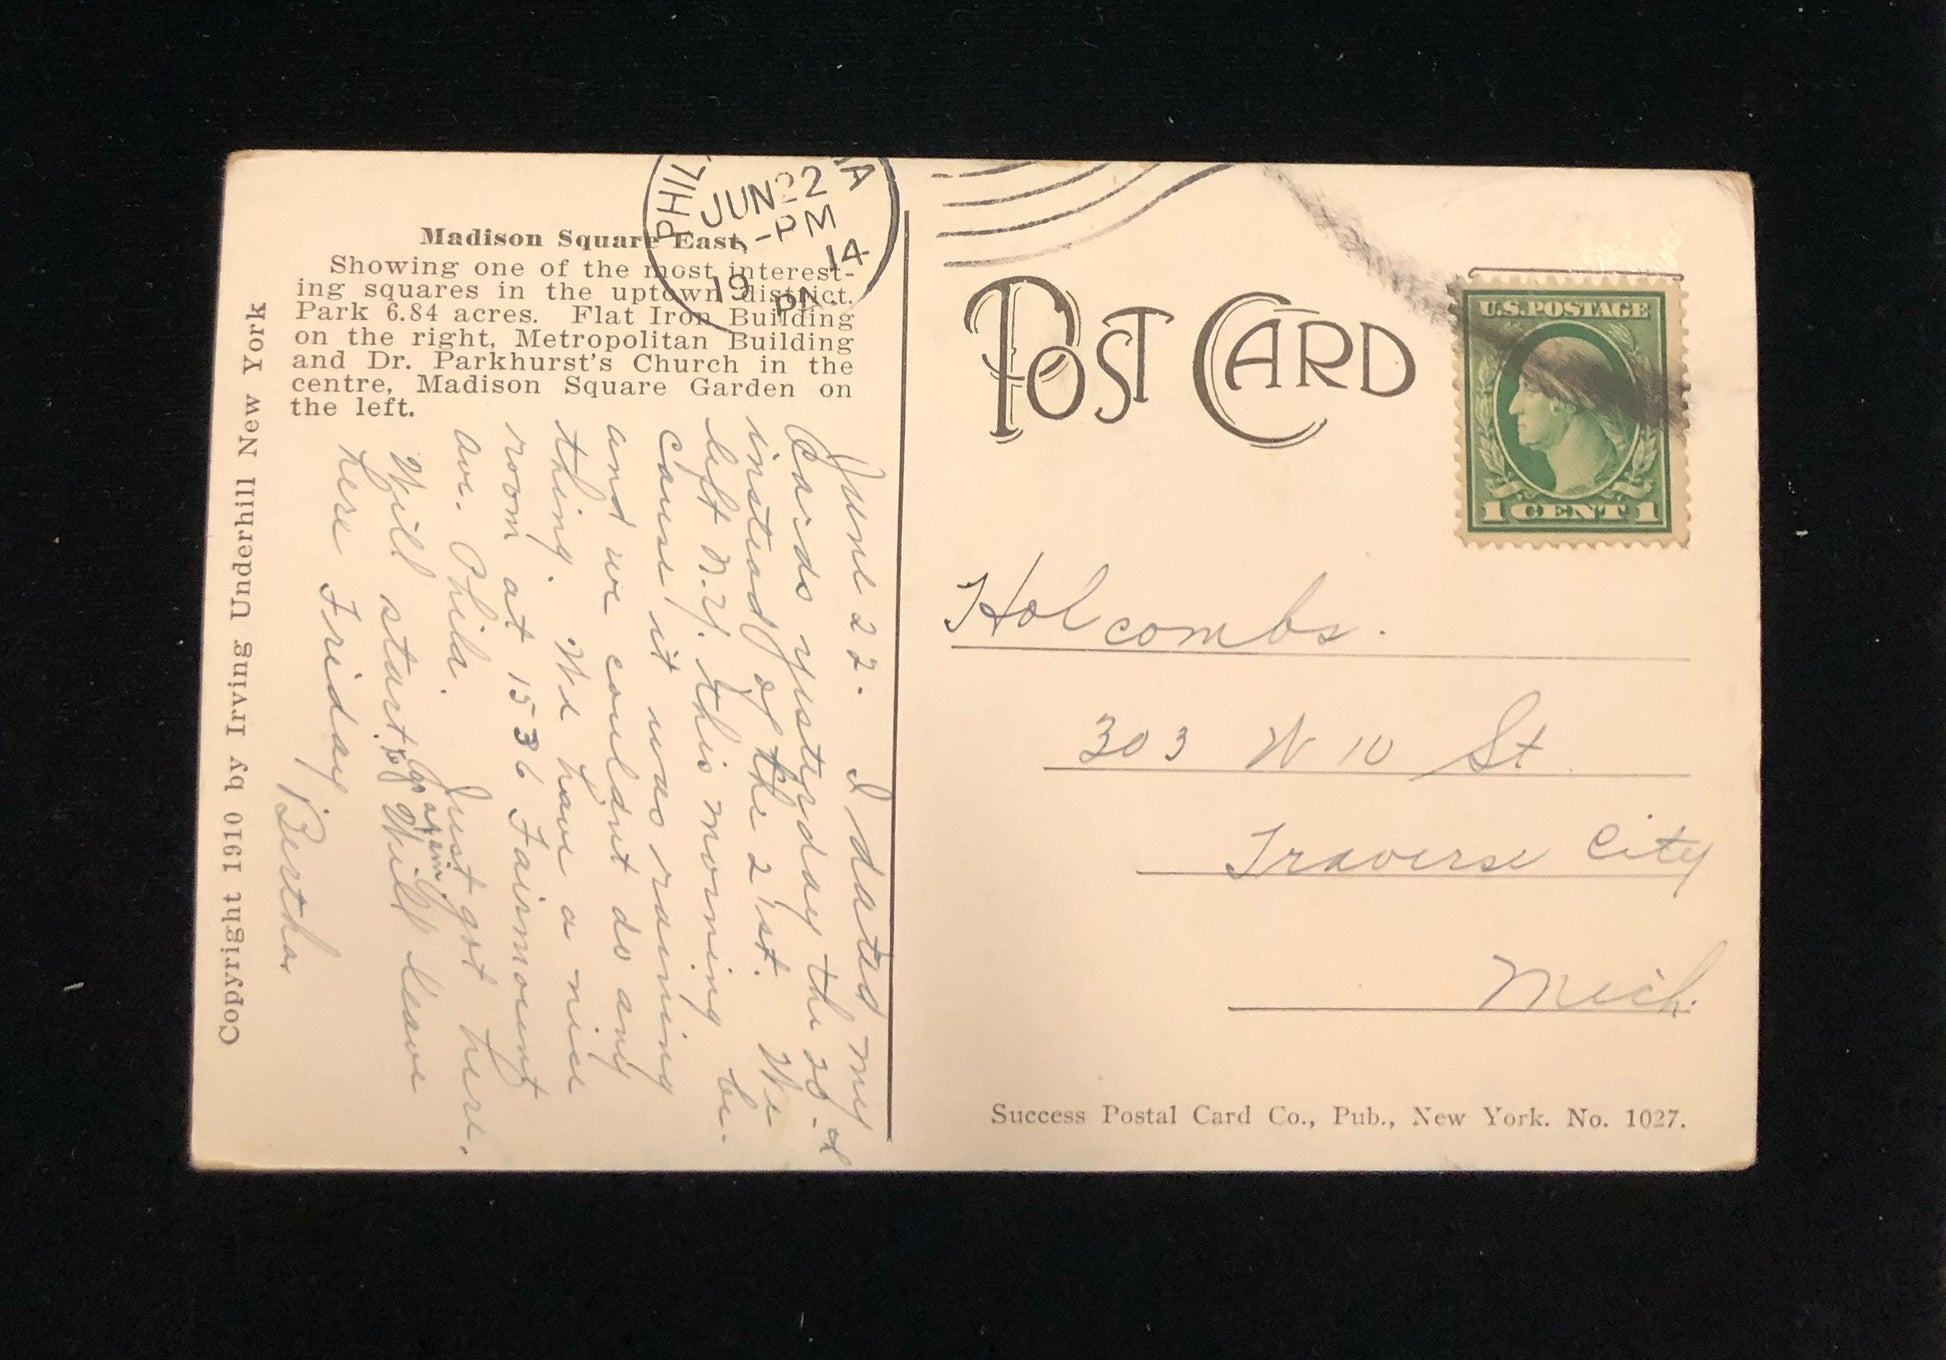 PHIL IA
JUN 22
-PM
19 14
PA.
Madison Square East,
Showing one of the most interest-
ing squares in the uptown district.
Park 6.84 acres. Flat Iron Building
on the right, Metropolitan Building
and Dr. Parkhurst's Church in the
centre, Madison Square Garden on
the left.
Copyright 1910 by Irving Underhill New York
June 22. I dated my
cards yesterday the 20th
instead of the 21st. We
left N.Y. this morning be-
cause it was raining
and we couldnt do any
thing. We have a nice
room at 1536 Fairmount
ave. Phila. Just got here.
Will start to Will leave
here Friday
Bertha.
POST CARD
U.S. POSTAGE
1 CENT 1
Holcombs.
303 W 10 St.
Traverse City
Mich.
Success Postal Card Co., Pub., New York. No. 1027.